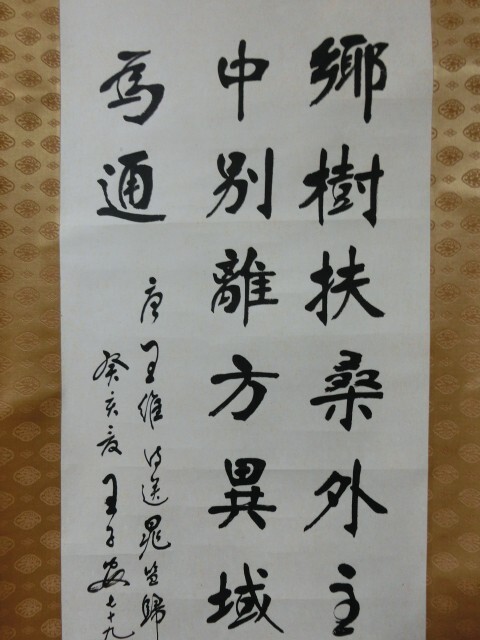 鄉樹扶桑外主
中別離方異域
為通
唐王維詩送晁監歸
癸亥夏王子安七十九